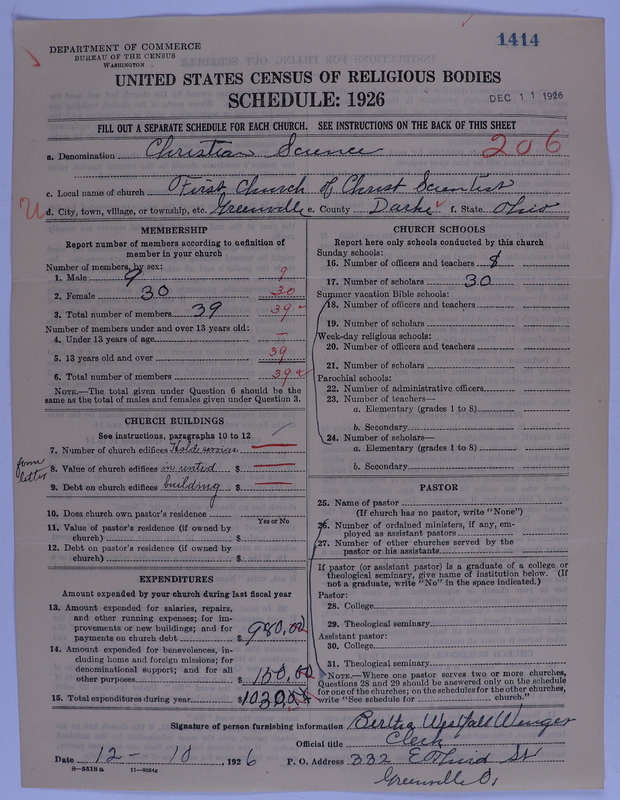 1414
DEPARTMENT OF COMMERCE
BUREAU OF THE CENSUS
WASHINGTON
UNITED STATES CENSUS OF RELIGIOUS BODIES
SCHEDULE: 1926
DEC 11 1926
FILL OUT A SEPARATE SCHEDULE FOR EACH CHURCH. SEE INSTRUCTIONS ON THE BACK OF THIS SHEET
a. Denomination Christian Science 206
c. Local name of church First Church of Christ Scientist
d. City, town, village, or township, etc. Greenville e. County Darke f. State Ohio
MEMBERSHIP
Report number of members according to definition of
member in your church
Number of members, by sex:
1. Male 9 9
2. Female 30 30
3. Total number of members 39 39
Number of members under and over 13 years old:
4. Under 13 years of age —
5. 13 years old and over 39
6. Total number of members 39
NOTE.—The total given under Question 6 should be the
same as the total of males and females given under Question 3.
CHURCH BUILDINGS
See instructions, paragraphs 10 to 12
7. Number of church edifices Hold services
8. Value of church edifices in rented $
9. Debt on church edifices building $
form
letter
10. Does church own pastor's residence
Yes or No
11. Value of pastor's residence (if owned by
church) $
12. Debt on pastor's residence (if owned by
church) $
EXPENDITURES
Amount expended by your church during last fiscal year
13. Amount expended for salaries, repairs,
and other running expenses; for im-
provements or new buildings; and for
payments on church debt $ 980.00
14. Amount expended for benevolences, in-
cluding home and foreign missions; for
denominational support; and for all
other purposes $
15. Total expenditures during year $
CHURCH SCHOOLS
Report here only schools conducted by this church
Sunday schools:
16. Number of officers and teachers 8
17. Number of scholars 30
Summer vacation Bible schools:
18. Number of officers and teachers
19. Number of scholars
Week-day religious schools:
20. Number of officers and teachers
21. Number of scholars
Parochial schools:
22. Number of administrative officers
23. Number of teachers—
a. Elementary (grades 1 to 8)
b. Secondary
24. Number of scholars—
a. Elementary (grades 1 to 8)
b. Secondary
PASTOR
25. Name of pastor
(If church has no pastor, write "None")
26. Number of ordained ministers, if any, em-
ployed as assistant pastors
27. Number of other churches served by the
pastor or his assistants
If pastor (or assistant pastor) is a graduate of a college or
theological seminary, give name of institution below. (If
not a graduate, write "No" in the space indicated.)
Pastor:
28. College
29. Theological seminary
Assistant pastor:
30. College
31. Theological seminary
NOTE.—Where one pastor serves two or more churches,
Questions 28 and 29 should be answered only on the schedule
for one of the churches; on the schedules for the other churches,
write "See schedule for church."
Signature of person furnishing information Bertha Westfall Wenger
Official title Clerk
Date 12 — 10, 1926 P. O. Address 332 E Third St
8—5518 a 11—9064g
Greenville O.